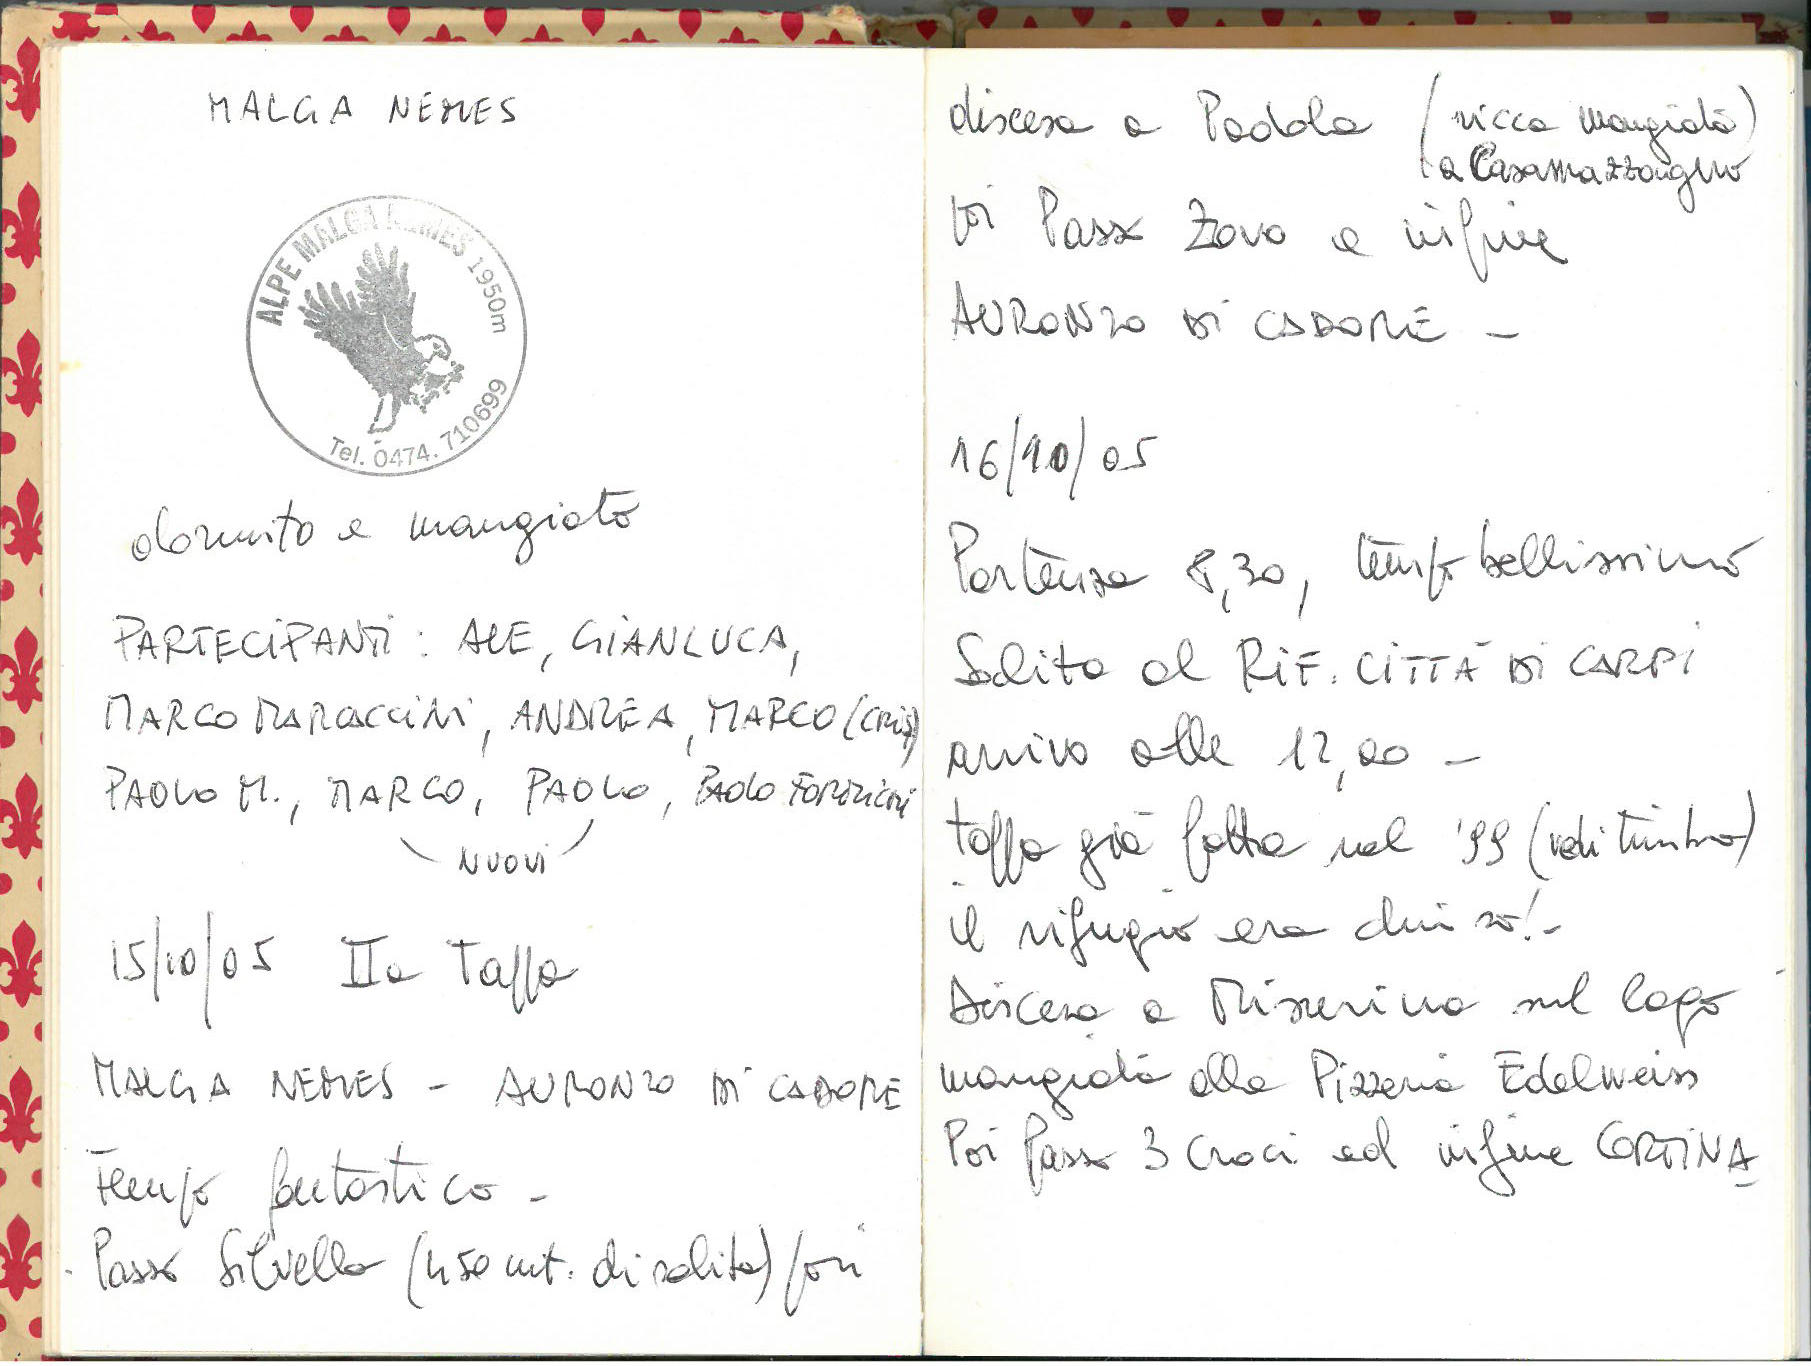 MALGA NEMES
ALPE MALGA NEMES 1950m
Tel. 0474. 710699
dormito e mangiato
PARTECIPANTI: ALE, GIANLUCA,
MARCO MARACCINI, ANDREA, MARCO (CRI
PAOLO M., MARCO, PAOLO, PAOLO
NUOVI
15/10/05 IIa Tappa
MALGA NEMES - AURONZO DI CADORE
Tempo fantastico -
Passo Silvella (450 mt. di salita) poi
discesa a Padola (ricca mangiata)
a Casamazzagno
poi Passo Zovo e infine
AURONZO DI CADORE -
16/10/05
Partenza 8,30, tempo bellissimo
Salita al RIF. CITTÀ DI CARPI
arrivo alle 12,00 -
tappa già fatta nel '99 (vedi timbro)
il rifugio era chiuso! -
Discesa a Misurina sul lago
mangiata alla Pizzeria Edelweiss
Poi Passo 3 Croci ed infine CORTINA